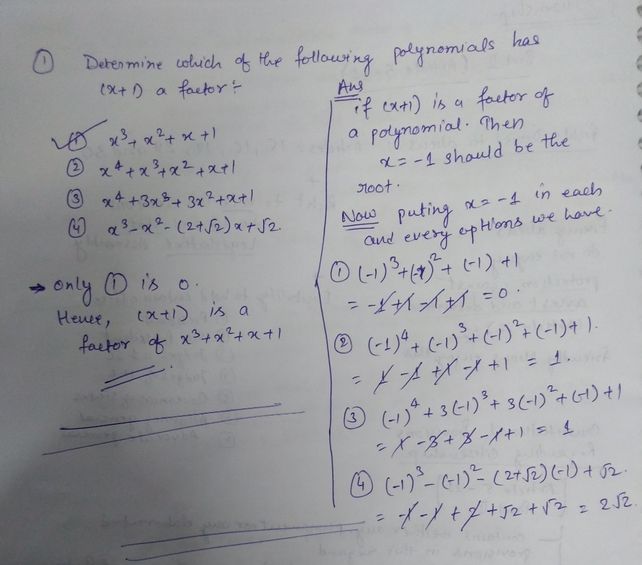 ① Determine which of the following polynomials has
(x+1) a factor :-
① x³ + x² + x + 1
② x⁴ + x³ + x² + x + 1
③ x⁴ + 3x³ + 3x² + x + 1
④ x³ - x² - (2+√2)x + √2.
→ only ① is 0.
Hence, (x+1) is a
factor of x³ + x² + x + 1
Ans
if (x+1) is a factor of
a polynomial. Then
x = -1 should be the
root.
Now puting x = -1 in each
and every options we have.
① (-1)³ + (-1)² + (-1) + 1
= -1 + 1 - 1 + 1 = 0.
② (-1)⁴ + (-1)³ + (-1)² + (-1) + 1.
= 1 - 1 + 1 - 1 + 1 = 1.
③ (-1)⁴ + 3(-1)³ + 3(-1)² + (-1) + 1
= 1 - 3 + 3 - 1 + 1 = 1
④ (-1)³ - (-1)² - (2+√2)(-1) + √2.
= -1 - 1 + 2 + √2 + √2 = 2√2.